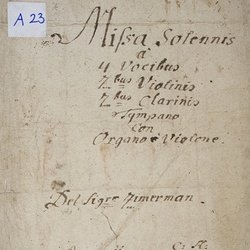 A 23
Missa Solennis
à
4 Vocibus
2bus Violinis
2bus Clarinis
Tympano
Con
Organo e Violone.
Del Sigre Zimerman.